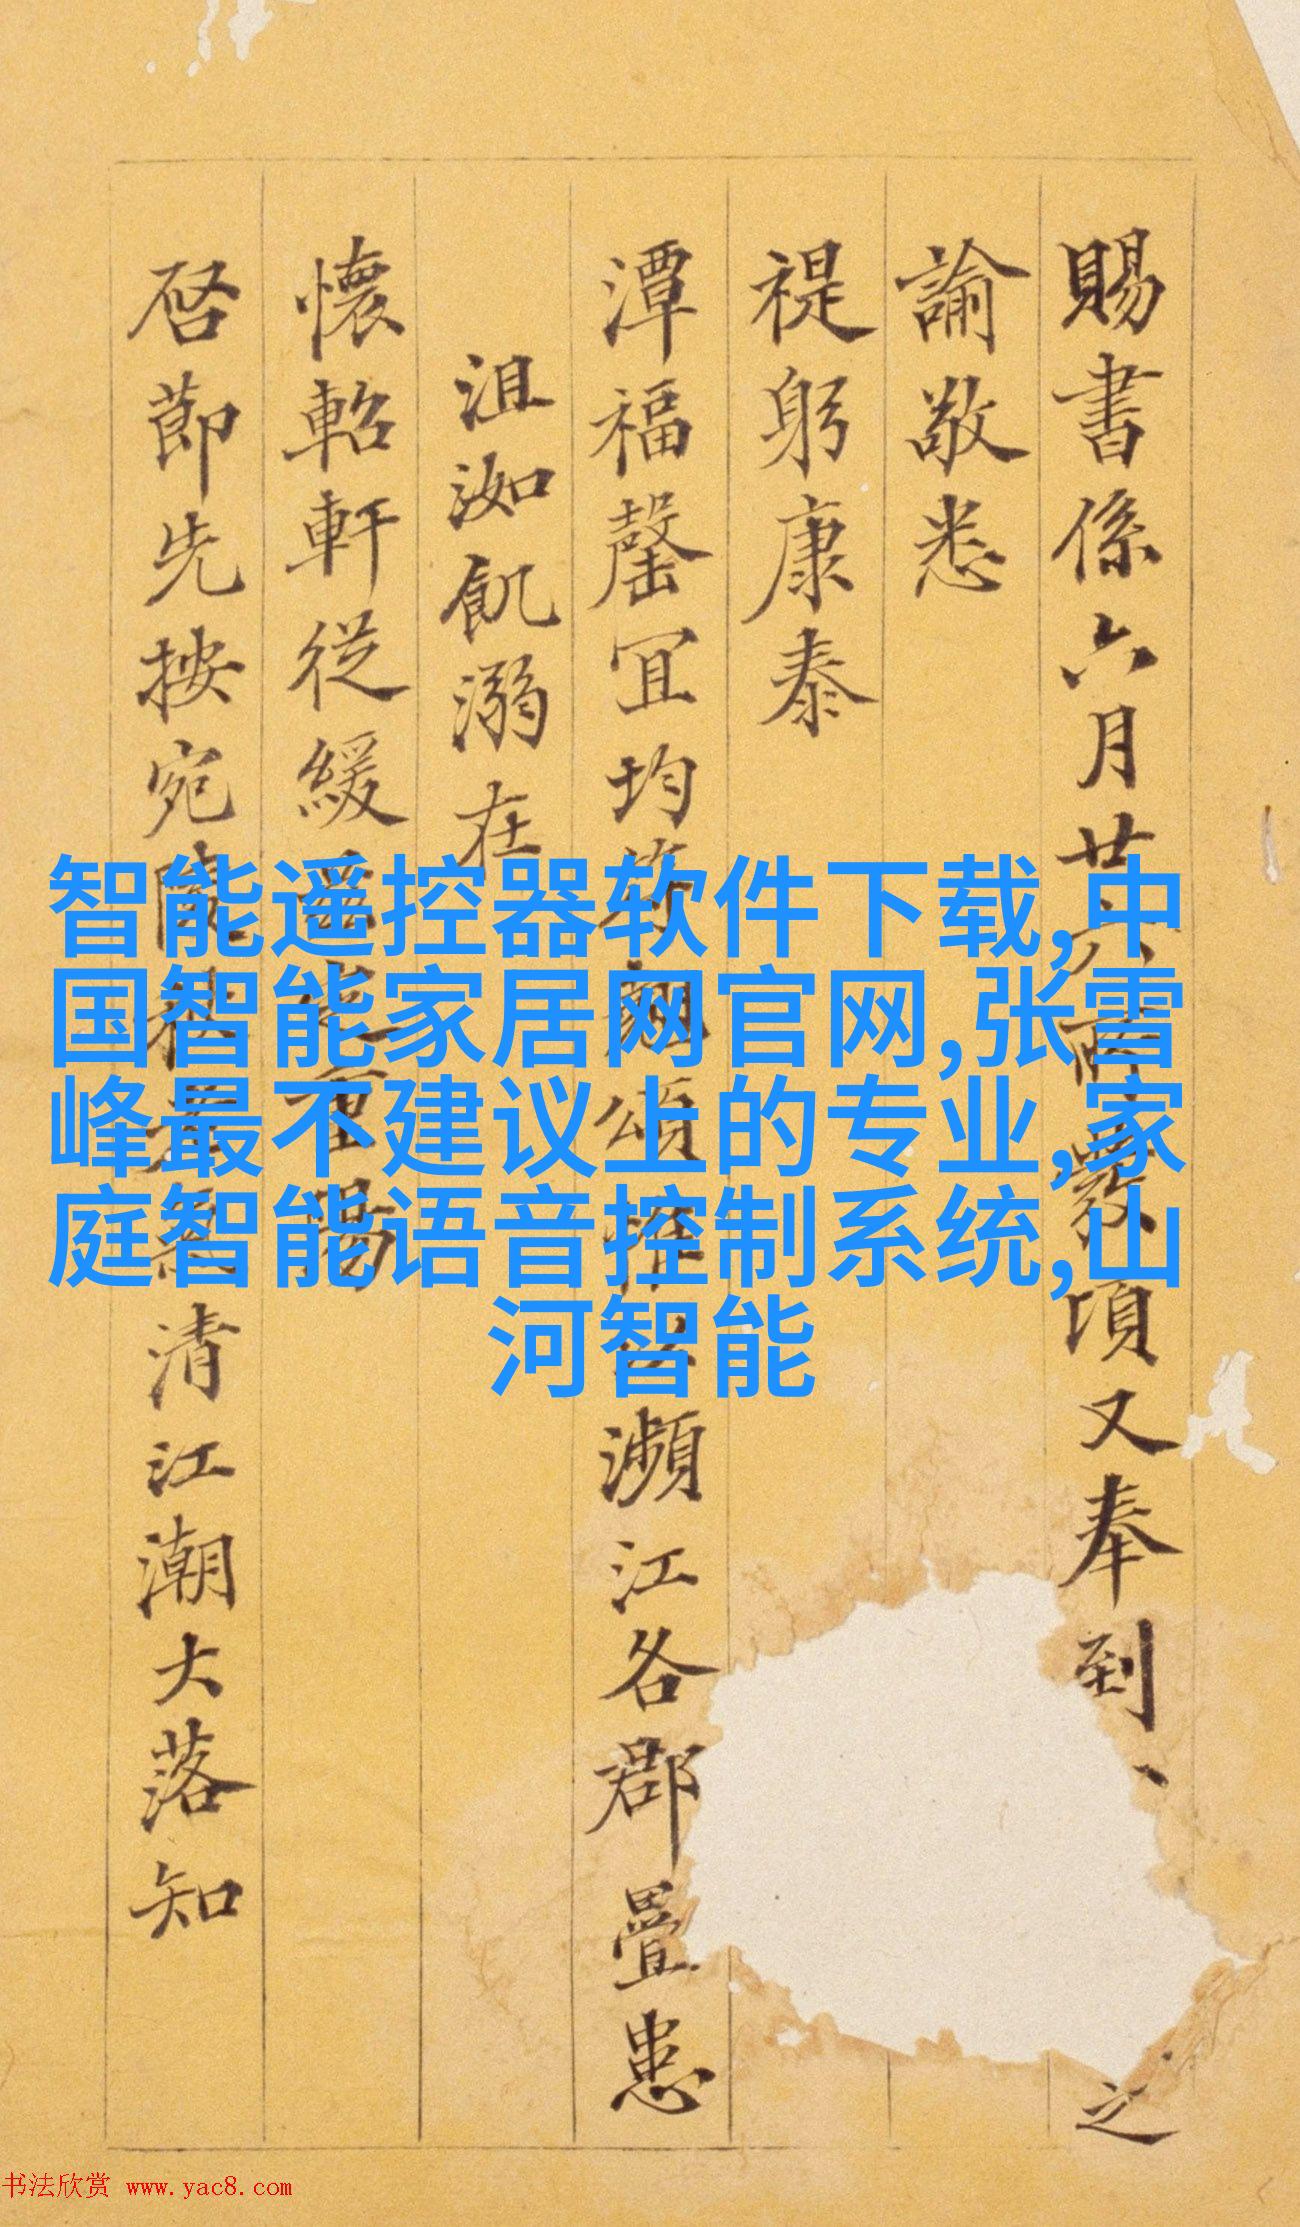 賜書係六月廿六
項又奉到
之
諭敬悉
禔躬康泰
潭福罄宜均
頌
瀕江各郡疊患
沮洳飢溺在
懷軺軒從緩
重陽
啓節先按宛陵
清江潮大落知
智能遥控器软件下载,中
国智能家居网官网,张雪
峰最不建议上的专业,家
庭智能语音控制系统,山
河智能
书法欣赏 www.yac8.com